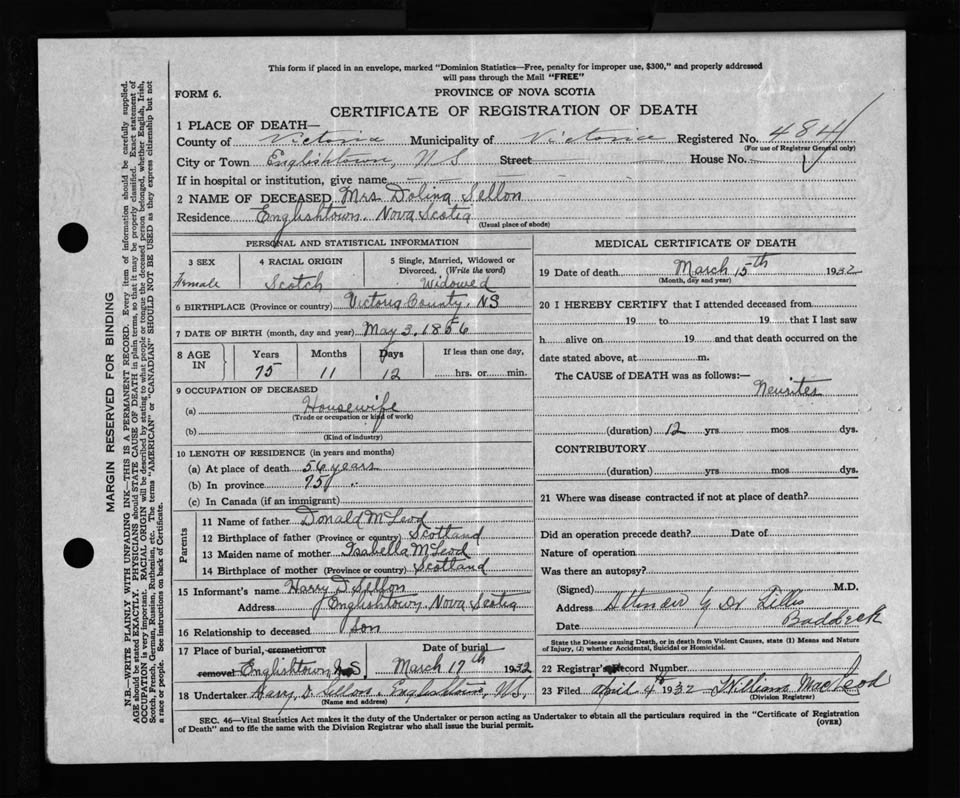 This form if placed in an envelope, marked "Dominion Statistics—Free, penalty for improper use, $300," and properly addressed
will pass through the Mail "FREE"
FORM 6.
PROVINCE OF NOVA SCOTIA
CERTIFICATE OF REGISTRATION OF DEATH
1 PLACE OF DEATH—
County of Victoria Municipality of Victoria Registered No. 484
(For use of Registrar General only)
City or Town Englishtown, N S Street House No.
If in hospital or institution, give name
2 NAME OF DECEASED Mrs Dolina Sellon
Residence Englishtown. Nova Scotia
(Usual place of abode)
PERSONAL AND STATISTICAL INFORMATION
3 SEX 4 RACIAL ORIGIN 5 Single, Married, Widowed or
Divorced. (Write the word)
Female Scotch Widowed
6 BIRTHPLACE (Province or country) Victoria County, NS
7 DATE OF BIRTH (month, day and year) May 3, 1856
8 AGE IN Years Months Days If less than one day,
75 11 12 hrs. or min.
9 OCCUPATION OF DECEASED
(a) Housewife
(Trade or occupation or kind of work)
(b)
(Kind of industry)
10 LENGTH OF RESIDENCE (in years and months)
(a) At place of death 56 years
(b) In province 75 "
(c) In Canada (if an immigrant)
Parents
11 Name of father Donald McLeod
12 Birthplace of father (Province or country) Scotland
13 Maiden name of mother Isabella McLeod
14 Birthplace of mother (Province or country) Scotland
15 Informant's name Harry D Sellon
Address Englishtown, Nova Scotia
16 Relationship to deceased Son
17 Place of burial, cremation or Date of burial
removal Englishtown N S. March 17th 1932
18 Undertaker Harry D Sellon. Englishtown, N S,
(Name and address)
MEDICAL CERTIFICATE OF DEATH
19 Date of death March 15th 1932
(Month, day and year)
20 I HEREBY CERTIFY that I attended deceased from
19 to 19 that I last saw
h alive on 19 and that death occurred on the
date stated above, at m.
The CAUSE of DEATH was as follows:—
Neurites
(duration) 12 yrs mos dys.
CONTRIBUTORY
(duration) yrs mos dys.
21 Where was disease contracted if not at place of death?
Did an operation precede death? Date of
Nature of operation
Was there an autopsy?
(Signed) M.D.
Address by Dr
Date Baddeck
State the Disease causing Death, or in death from Violent Causes, state (1) Means and Nature
of Injury, (2) whether Accidental, Suicidal or Homicidal.
22 Registrar's Record Number
23 Filed April 4th 1932 William MacLeod
(Division Registrar)
SEC. 46—Vital Statistics Act makes it the duty of the Undertaker or person acting as Undertaker to obtain all the particulars required in the "Certificate of Registration
of Death" and to file the same with the Division Registrar who shall issue the burial permit.
(OVER)
MARGIN RESERVED FOR BINDING
N.B.—WRITE PLAINLY WITH UNFADING INK—THIS IS A PERMANENT RECORD. Every item of information should be carefully supplied.
AGE should be stated EXACTLY. PHYSICIANS should STATE CAUSE OF DEATH in plain terms, so that it may be properly classified. Exact statement of
OCCUPATION is very important. RACIAL ORIGIN will be described by stating to what people or tongue the deceased person belonged, whether English, Irish,
Scotch, French, German, Russian, Ruthenian, etc. The terms "AMERICAN" or "CANADIAN" SHOULD NOT BE USED as they express citizenship but not
a race or people. See instructions on back of Certificate.